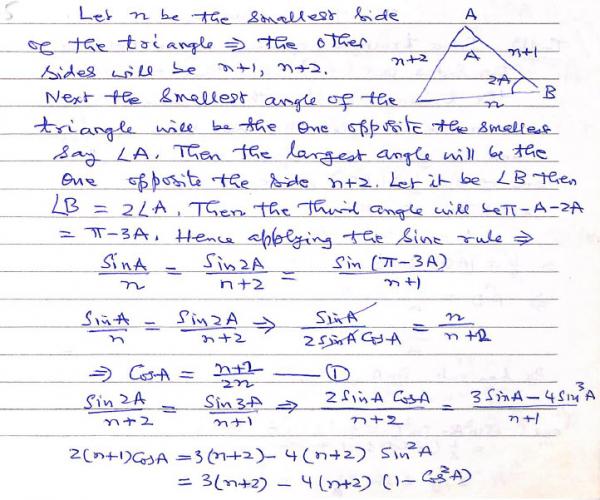 Let n be the smallest side
of the triangle ⇒ the other
sides will be n+1, n+2.
Next the smallest angle of the
triangle will be the one opposite the smallest
say ∠A. Then the largest angle will be the
one opposite the side n+2. Let it be ∠B then
∠B = 2∠A. Then the third angle will be π-A-2A
= π-3A. Hence applying the sine rule ⇒
A
n+2
n+1
A
2A
B
n
SinA/n = Sin2A/(n+2) = Sin(π-3A)/(n+1)
SinA/n = Sin2A/(n+2) ⇒ SinA/(2SinA CosA) = n/(n+2)
⇒ CosA = (n+2)/(2n) — ①
Sin2A/(n+2) = Sin3A/(n+1) ⇒ (2SinA CosA)/(n+2) = (3SinA-4Sin³A)/(n+1)
2(n+1)CosA = 3(n+2)-4(n+2) Sin²A
= 3(n+2) - 4(n+2) (1-Cos²A)